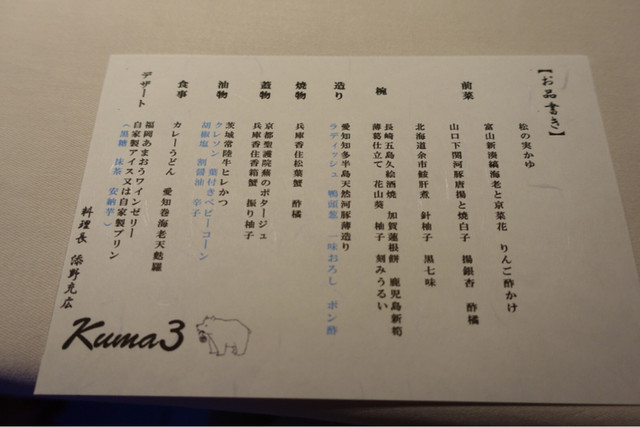 【お品書き】
前菜
松の実かゆ
富山新湊縞海老と京菜花 りんご酢かけ
山口下関河豚唐揚と焼白子 揚銀杏 酢橘
北海道余市鮟肝煮 針柚子 黒七味
椀
長崎五島久絵酒焼 加賀蓮根餅 鹿児島新筍
薄葛仕立て 花山葵 柚子 刻みうるい
造り
愛知知多半島天然河豚薄造り
ラディッシュ 鴨頭葱 一味おろし ポン酢
焼物
兵庫香住松葉蟹 酢橘
蓋物
京都聖護院蕪のポタージュ
兵庫香住香箱蟹 振り柚子
油物
茨城常陸牛ヒレかつ
クレソン 葉付きベビーコーン
胡椒塩 割醤油 辛子
食事
カレーうどん 愛知巻海老天麩羅
デザート
福岡あまおうワインゼリー
自家製アイス又は自家製プリン
(黒糖 抹茶 安納芋)
料理長
Kuma3